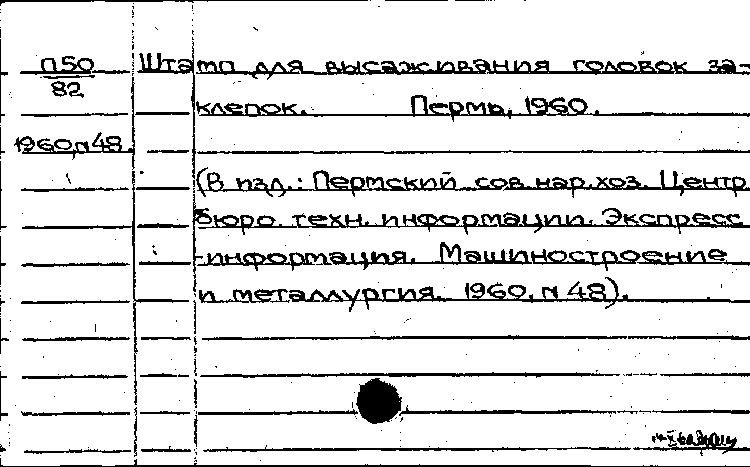 П50
82
1960, N 48.
Штамп для высаживания головок за-
клепок. Пермь, 1960.
(В изд.: Пермский сов. нар. хоз. Центр.
бюро техн. информации. Экспресс
-информация. Машиностроение
и металлургия. 1960, N 48).